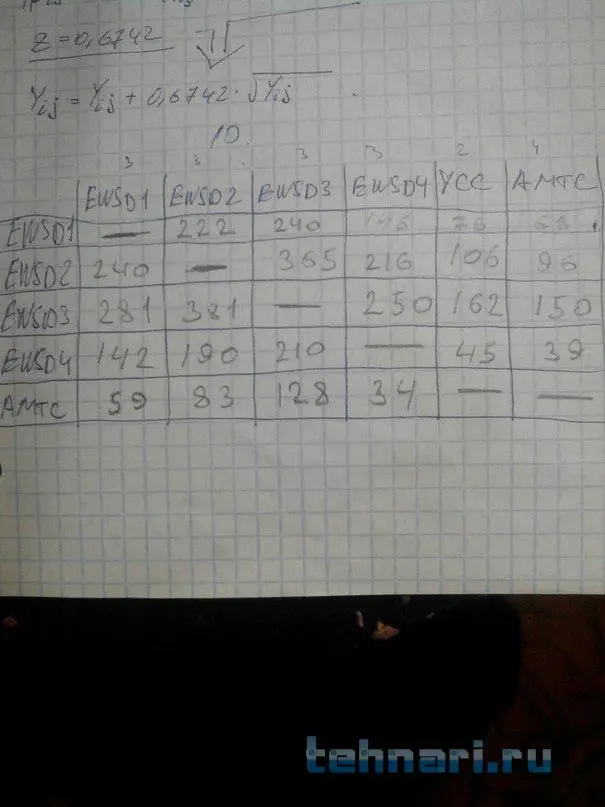 Z = 0,6742
Yij = Yij + 0,6742 · √Yij
10.
3 3 3 3 2 4
EWSD1 EWSD2 EWSD3 EWSD4 УСС АМТС
EWSD1 — 222 240 145 76 63
EWSD2 240 — 365 216 106 96
EWSD3 281 381 — 250 162 150
EWSD4 142 190 210 — 45 39
АМТС 59 83 128 34 — —
tehnari.ru